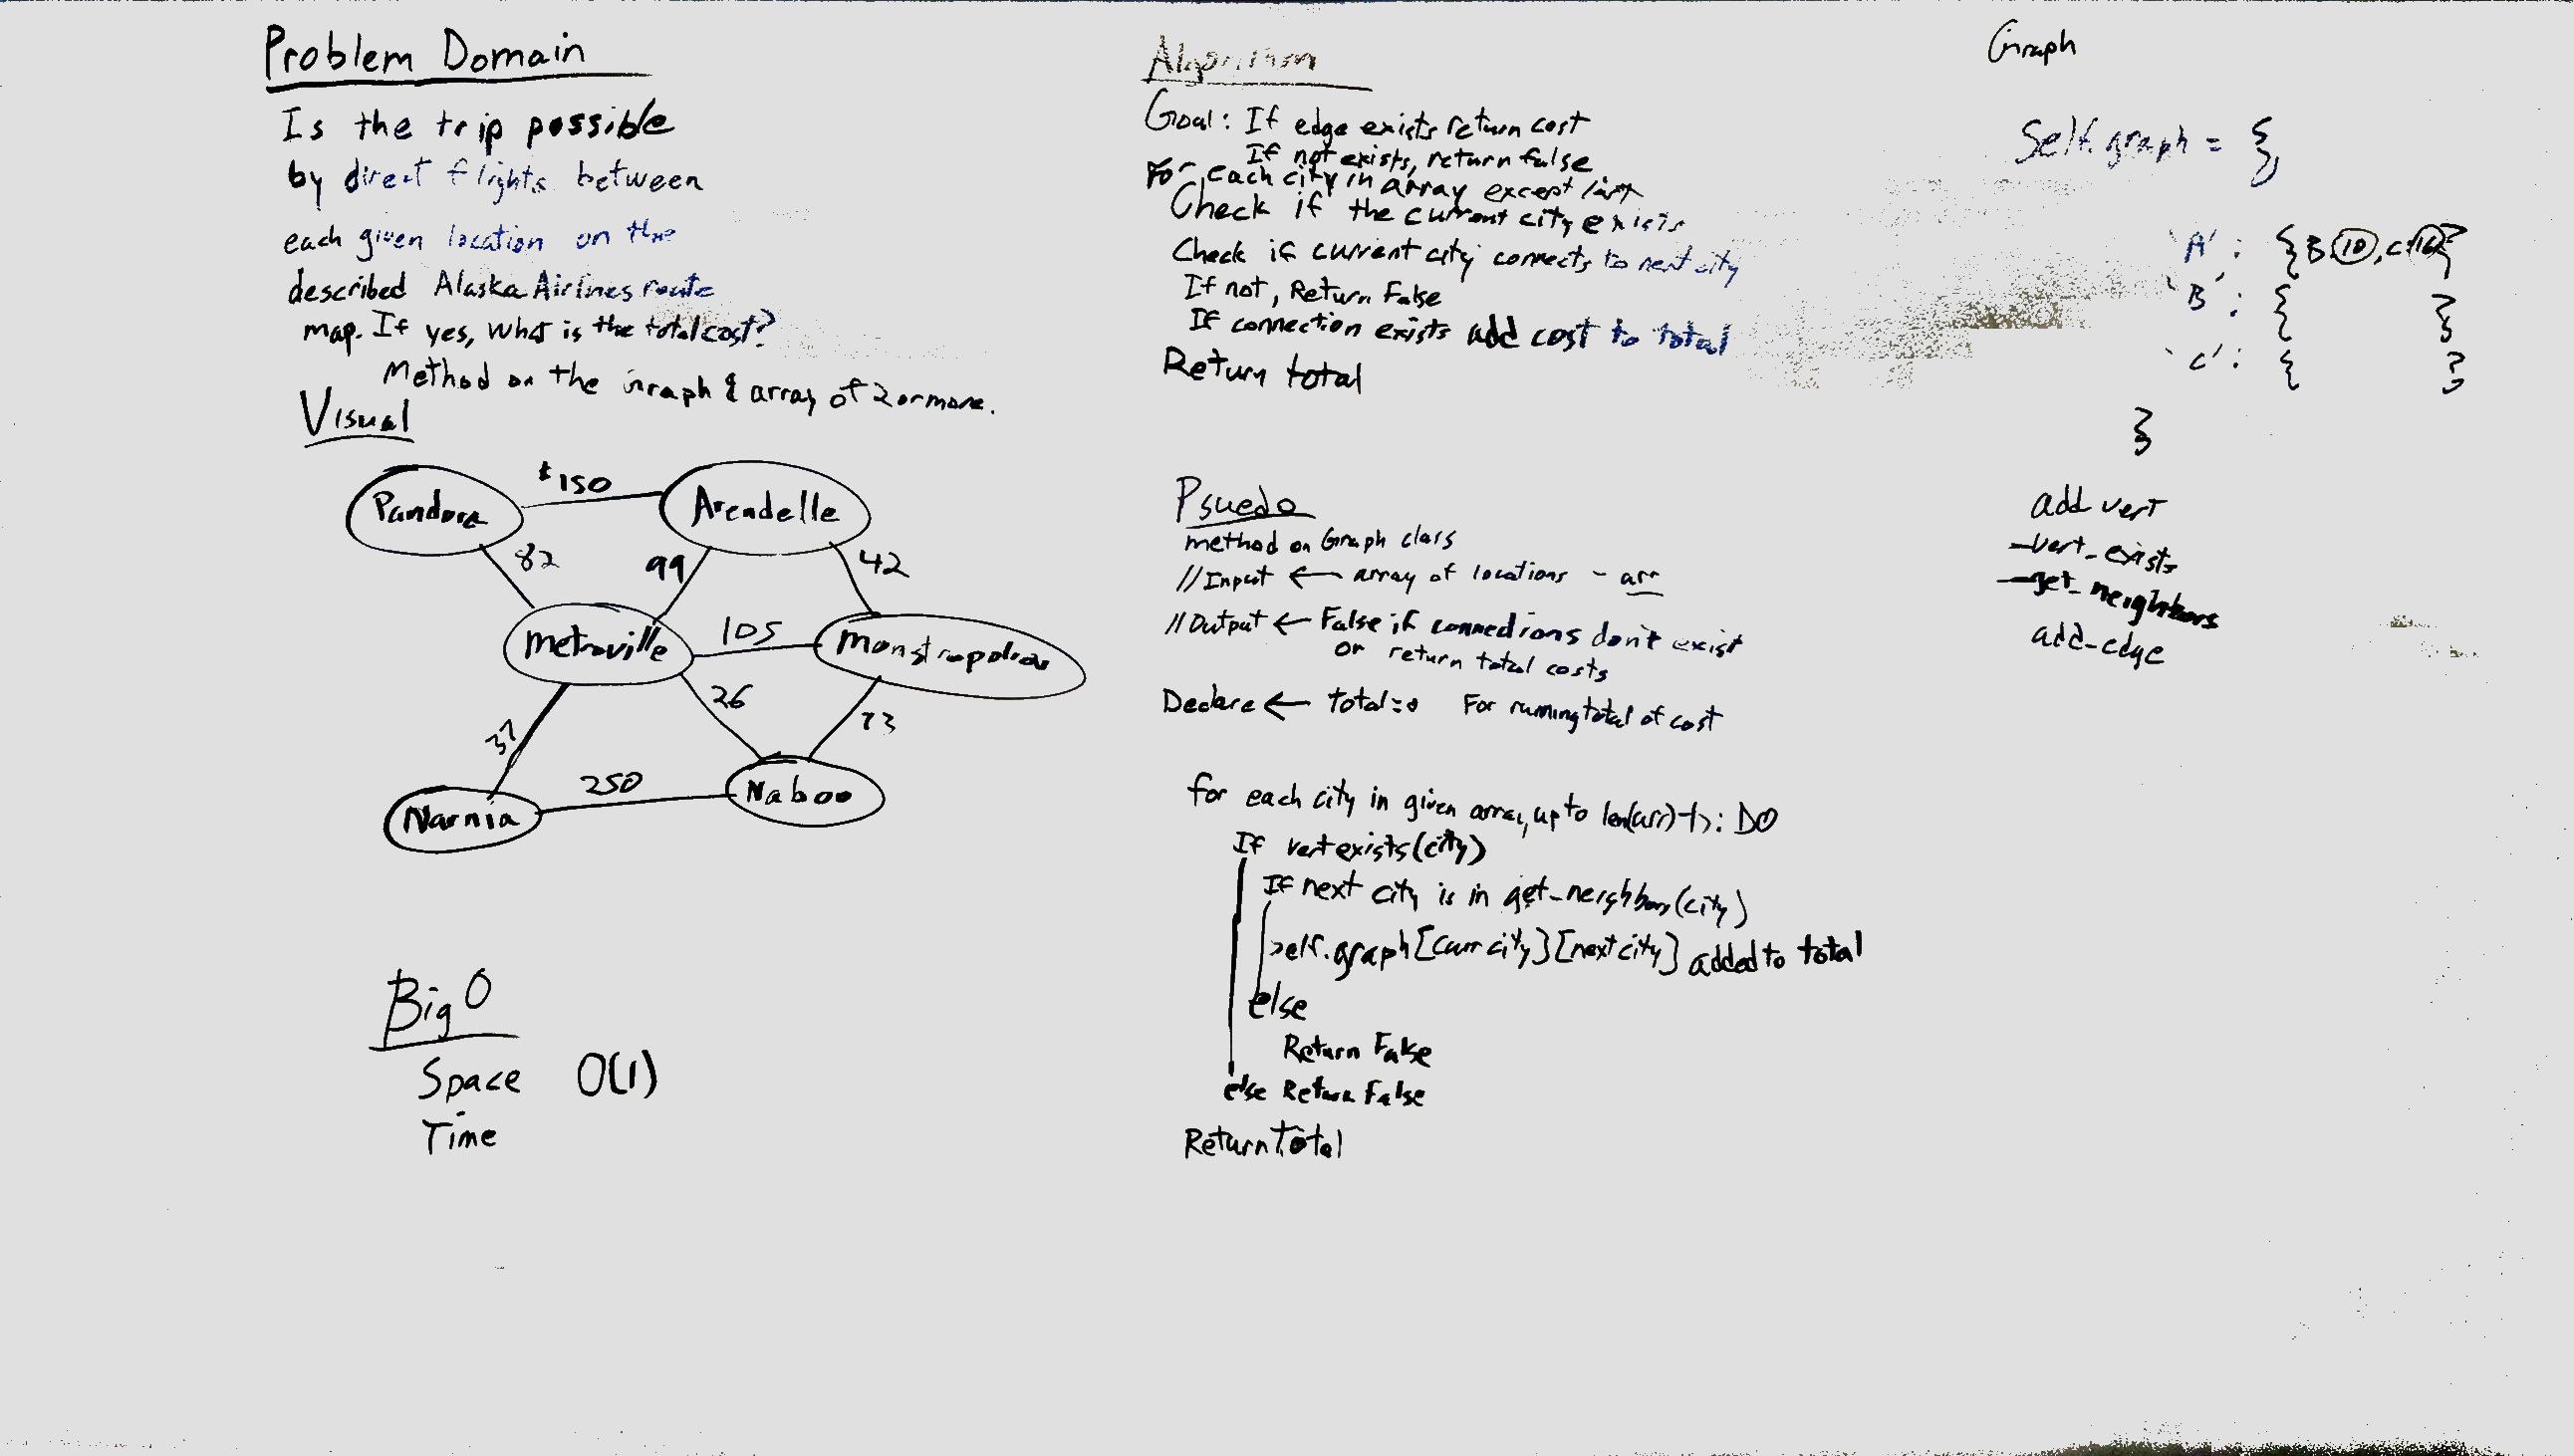 Problem Domain
Is the trip possible
by direct flights between
each given location on the
described Alaska Airlines route
map. If yes, what is the total cost?
Method on the Graph & array of 2 or more.
Visual
Pandora
$150
Arendelle
82
99
42
Metroville
105
Monstropolis
37
26
73
Narnia
250
Naboo
Big O
Space O(1)
Time
Algorithm
Goal: If edge exists return cost
If not exists, return false
For each city in array except last
Check if the current city exists
Check if current city connects to next city
If not, Return False
If connection exists add cost to total
Return total
Psuedo
method on Graph class
//Input ← array of locations - arr
//Output ← False if connections don't exist
or return total costs
Declare ← total = 0 For running total of cost
for each city in given array, up to len(arr)-1: DO
If vert exists(city)
If next city is in get_neighbors(city)
self.graph[curr city][next city] added to total
else
Return False
else Return False
Return Total
Graph
Self.graph = {
'A': {B:10, C:
'B': { },
'C': { },
}
add vert
-vert_exists
-get_neighbors
add_edge